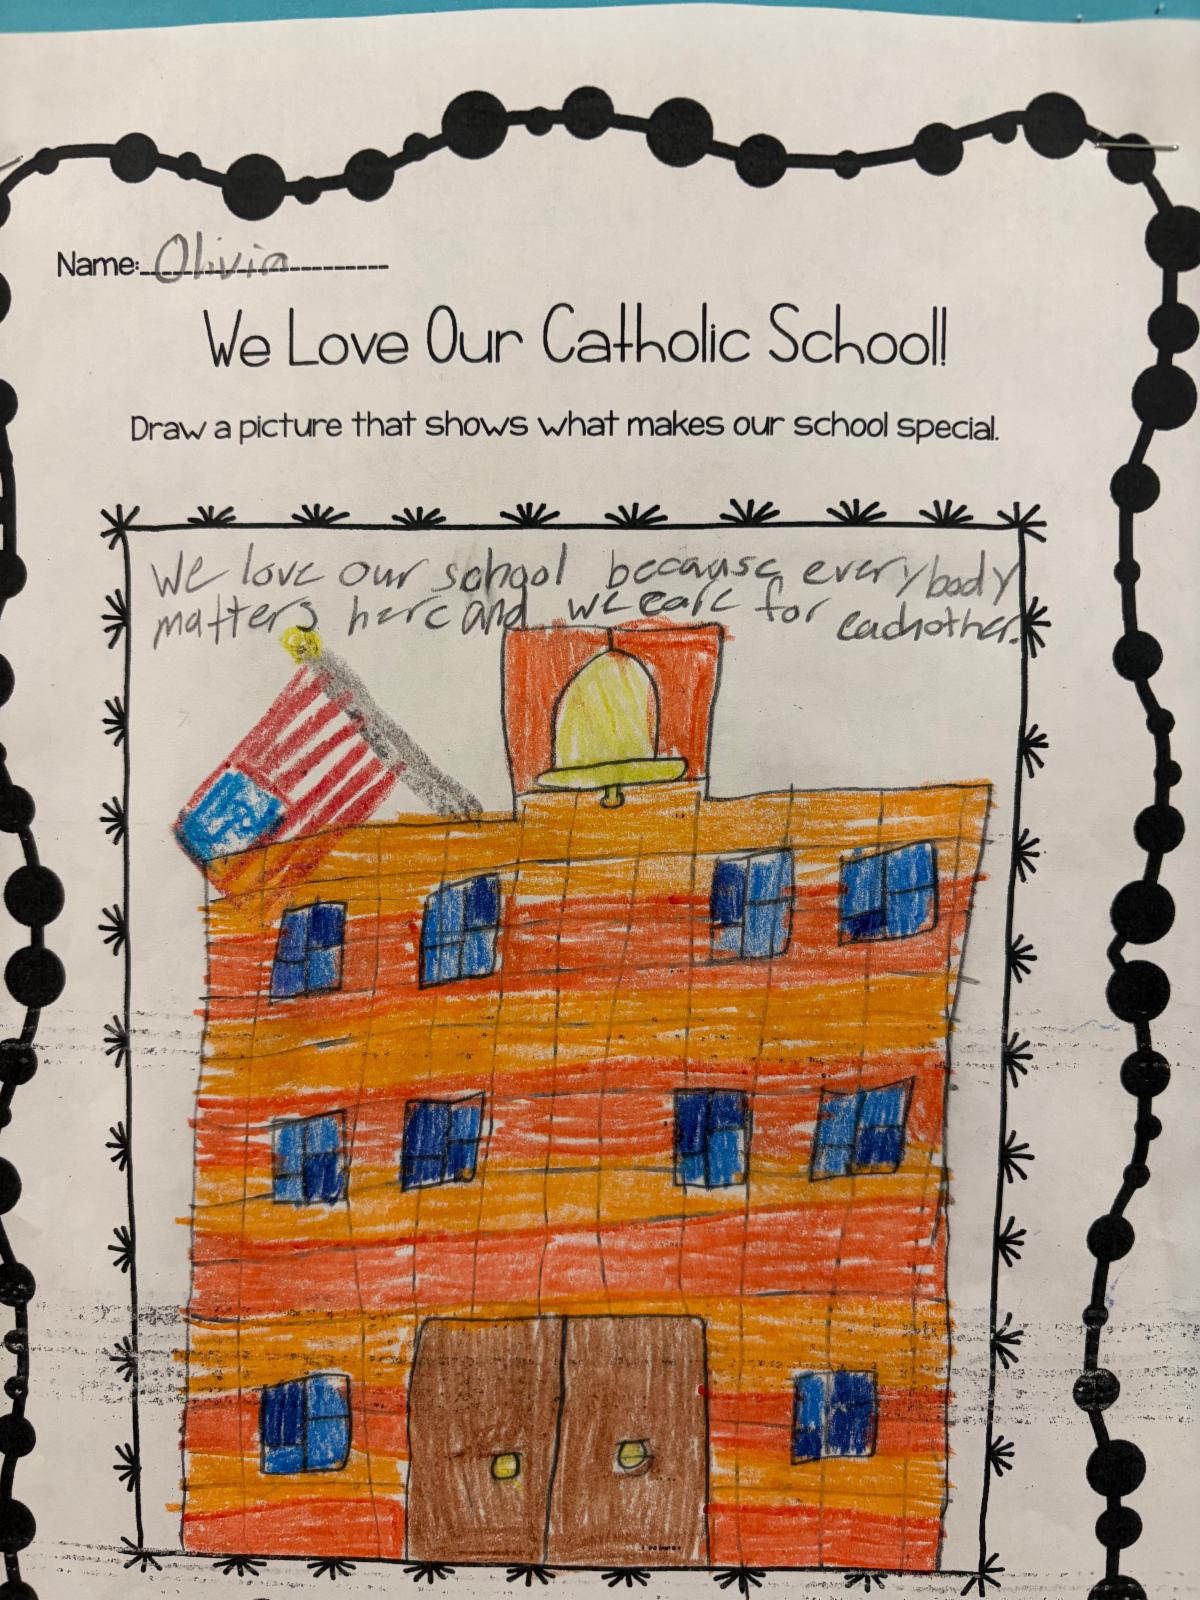 Name: Olivia
We Love Our Catholic School!
Draw a picture that shows what makes our school special.
We love our school because everybody
matters here and we care for eachother.